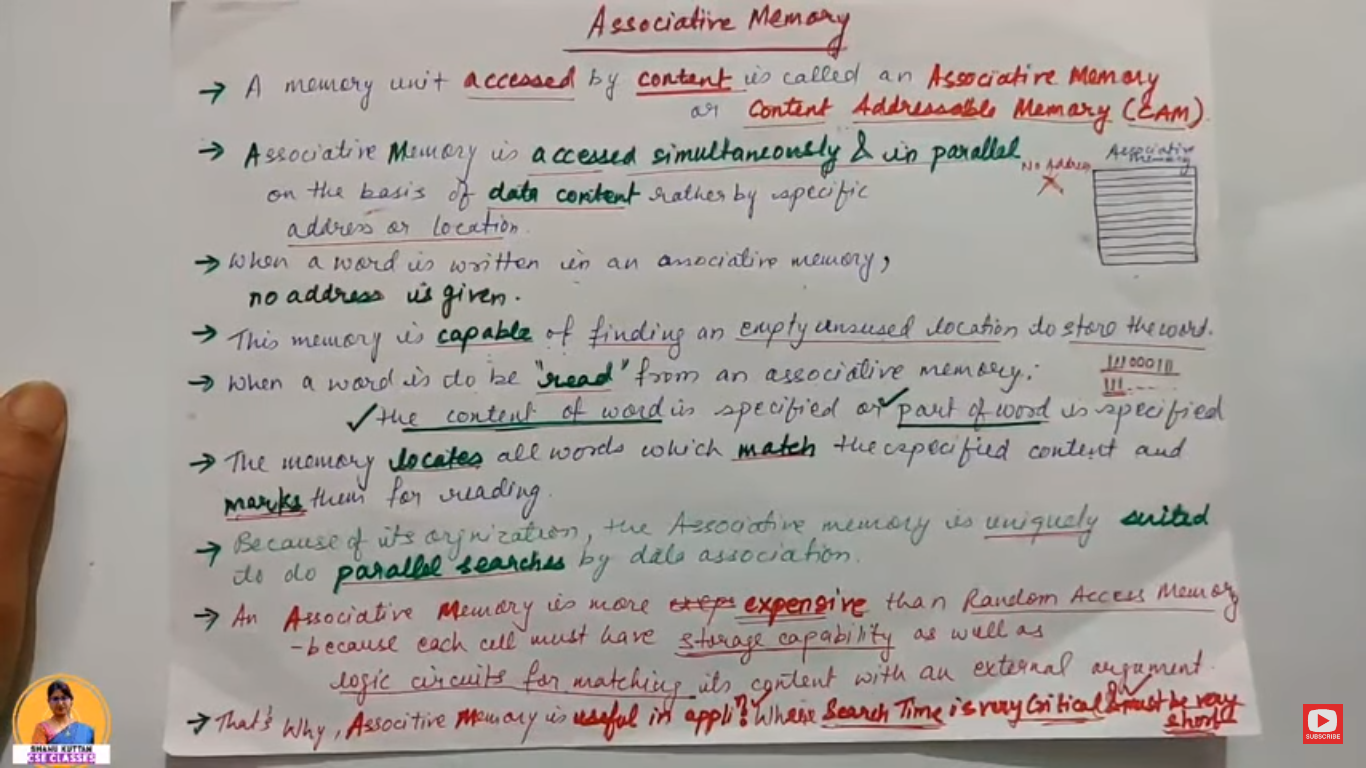 Associative Memory
→ A memory unit accessed by content is called an Associative Memory
or Content Addressable Memory (CAM).
→ Associative Memory is accessed simultaneously & in parallel
on the basis of data content rather by specific
address or location.
No Address
Associative
Memory
→ When a word is written in an associative memory,
no address is given.
→ This memory is capable of finding an empty unsused location to store the word.
→ When a word is to be "read" from an associative memory:
11100010
111----
✓ the content of word is specified or ✓ part of word is specified
→ The memory locates all words which match the specified content and
marks them for reading.
→ Because of its orgnization, the Associative memory is uniquely suited
to do parallel searches by data association.
→ An Associative Memory is more expensive than Random Access Memory
- because each cell must have storage capability as well as
logic circuits for matching its content with an external argument.
→ That's Why, Associtive Memory is useful in appli? Where Search Time is very Critical & must be very
short
BHANU KUTTAN
CSE CLASSES
SUBSCRIBE